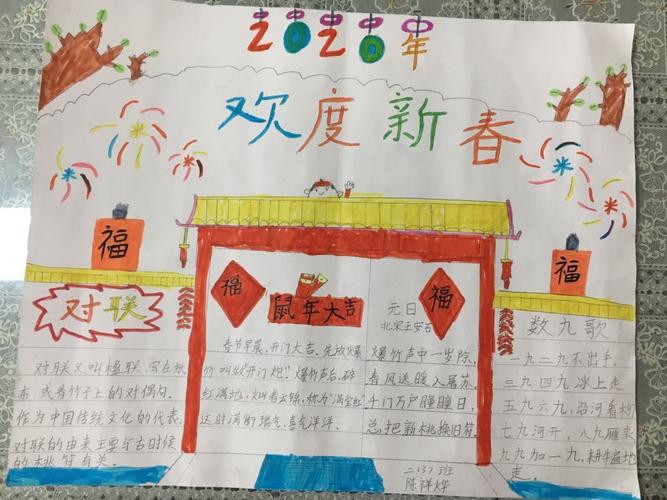 2020年
欢度新春
福
福
福
鼠年大吉
福
对联
对联又叫楹联，写在纸
布，或者竹子上的对偶句。
作为中国传统文化的代表，
对联的由来主要与古时候
的桃符有关。
春节早晨，开门大吉，先放爆
竹叫做“开门炮”。爆竹声后，碎
红满地，灿若云锦，称为“满堂红”
这时满街瑞气，喜气洋洋。
元日
北宋王安石
爆竹声中一岁除，
春风送暖入屠苏。
千门万户曈曈日，
总把新桃换旧符。
数九歌
一九二九不出手，
三九四九冰上走，
五九六九，沿河看柳
七九河开，八九雁来，
九九加一九，耕牛遍地
走。
二（3）班
陈祥烨